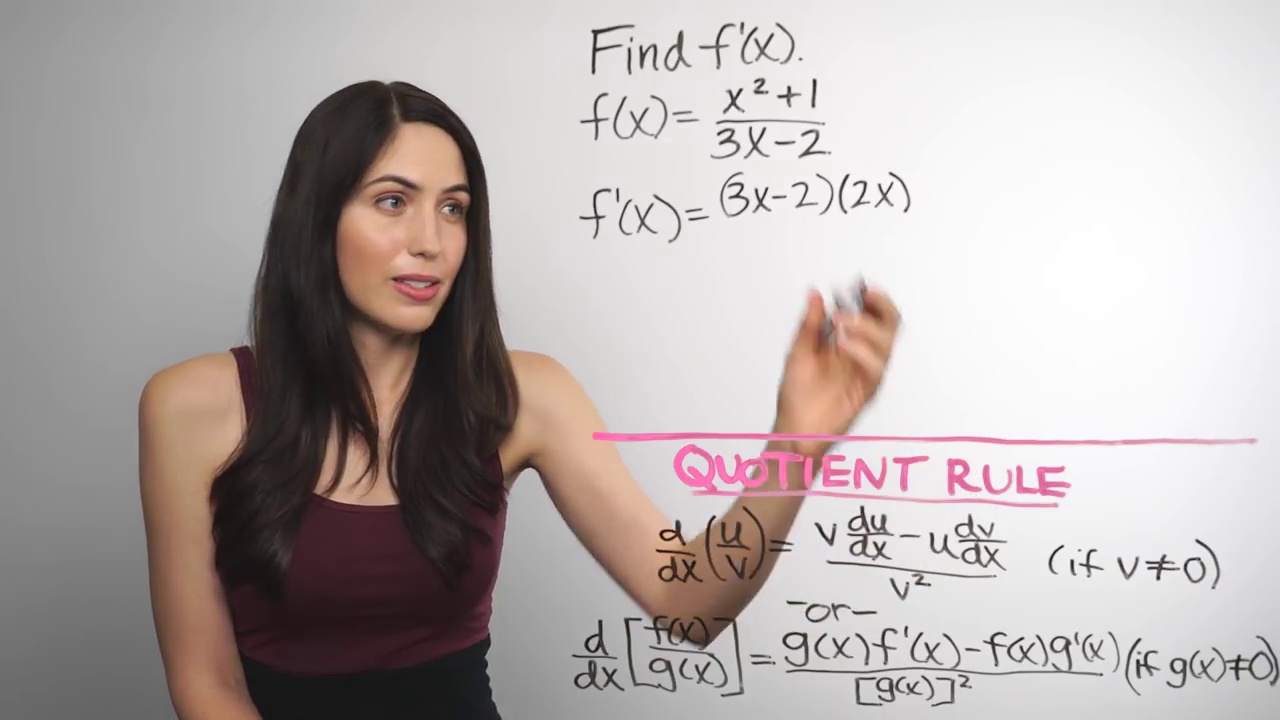 Find f'(x).
f(x) = (x² + 1)/(3x - 2)
f'(x) = (3x-2)(2x)
QUOTIENT RULE
d/dx (u/v) = (v du/dx - u dv/dx)/v² (if v ≠ 0)
-or-
d/dx [f(x)/g(x)] = (g(x)f'(x) - f(x)g'(x))/[g(x)]² (if g(x) ≠ 0)